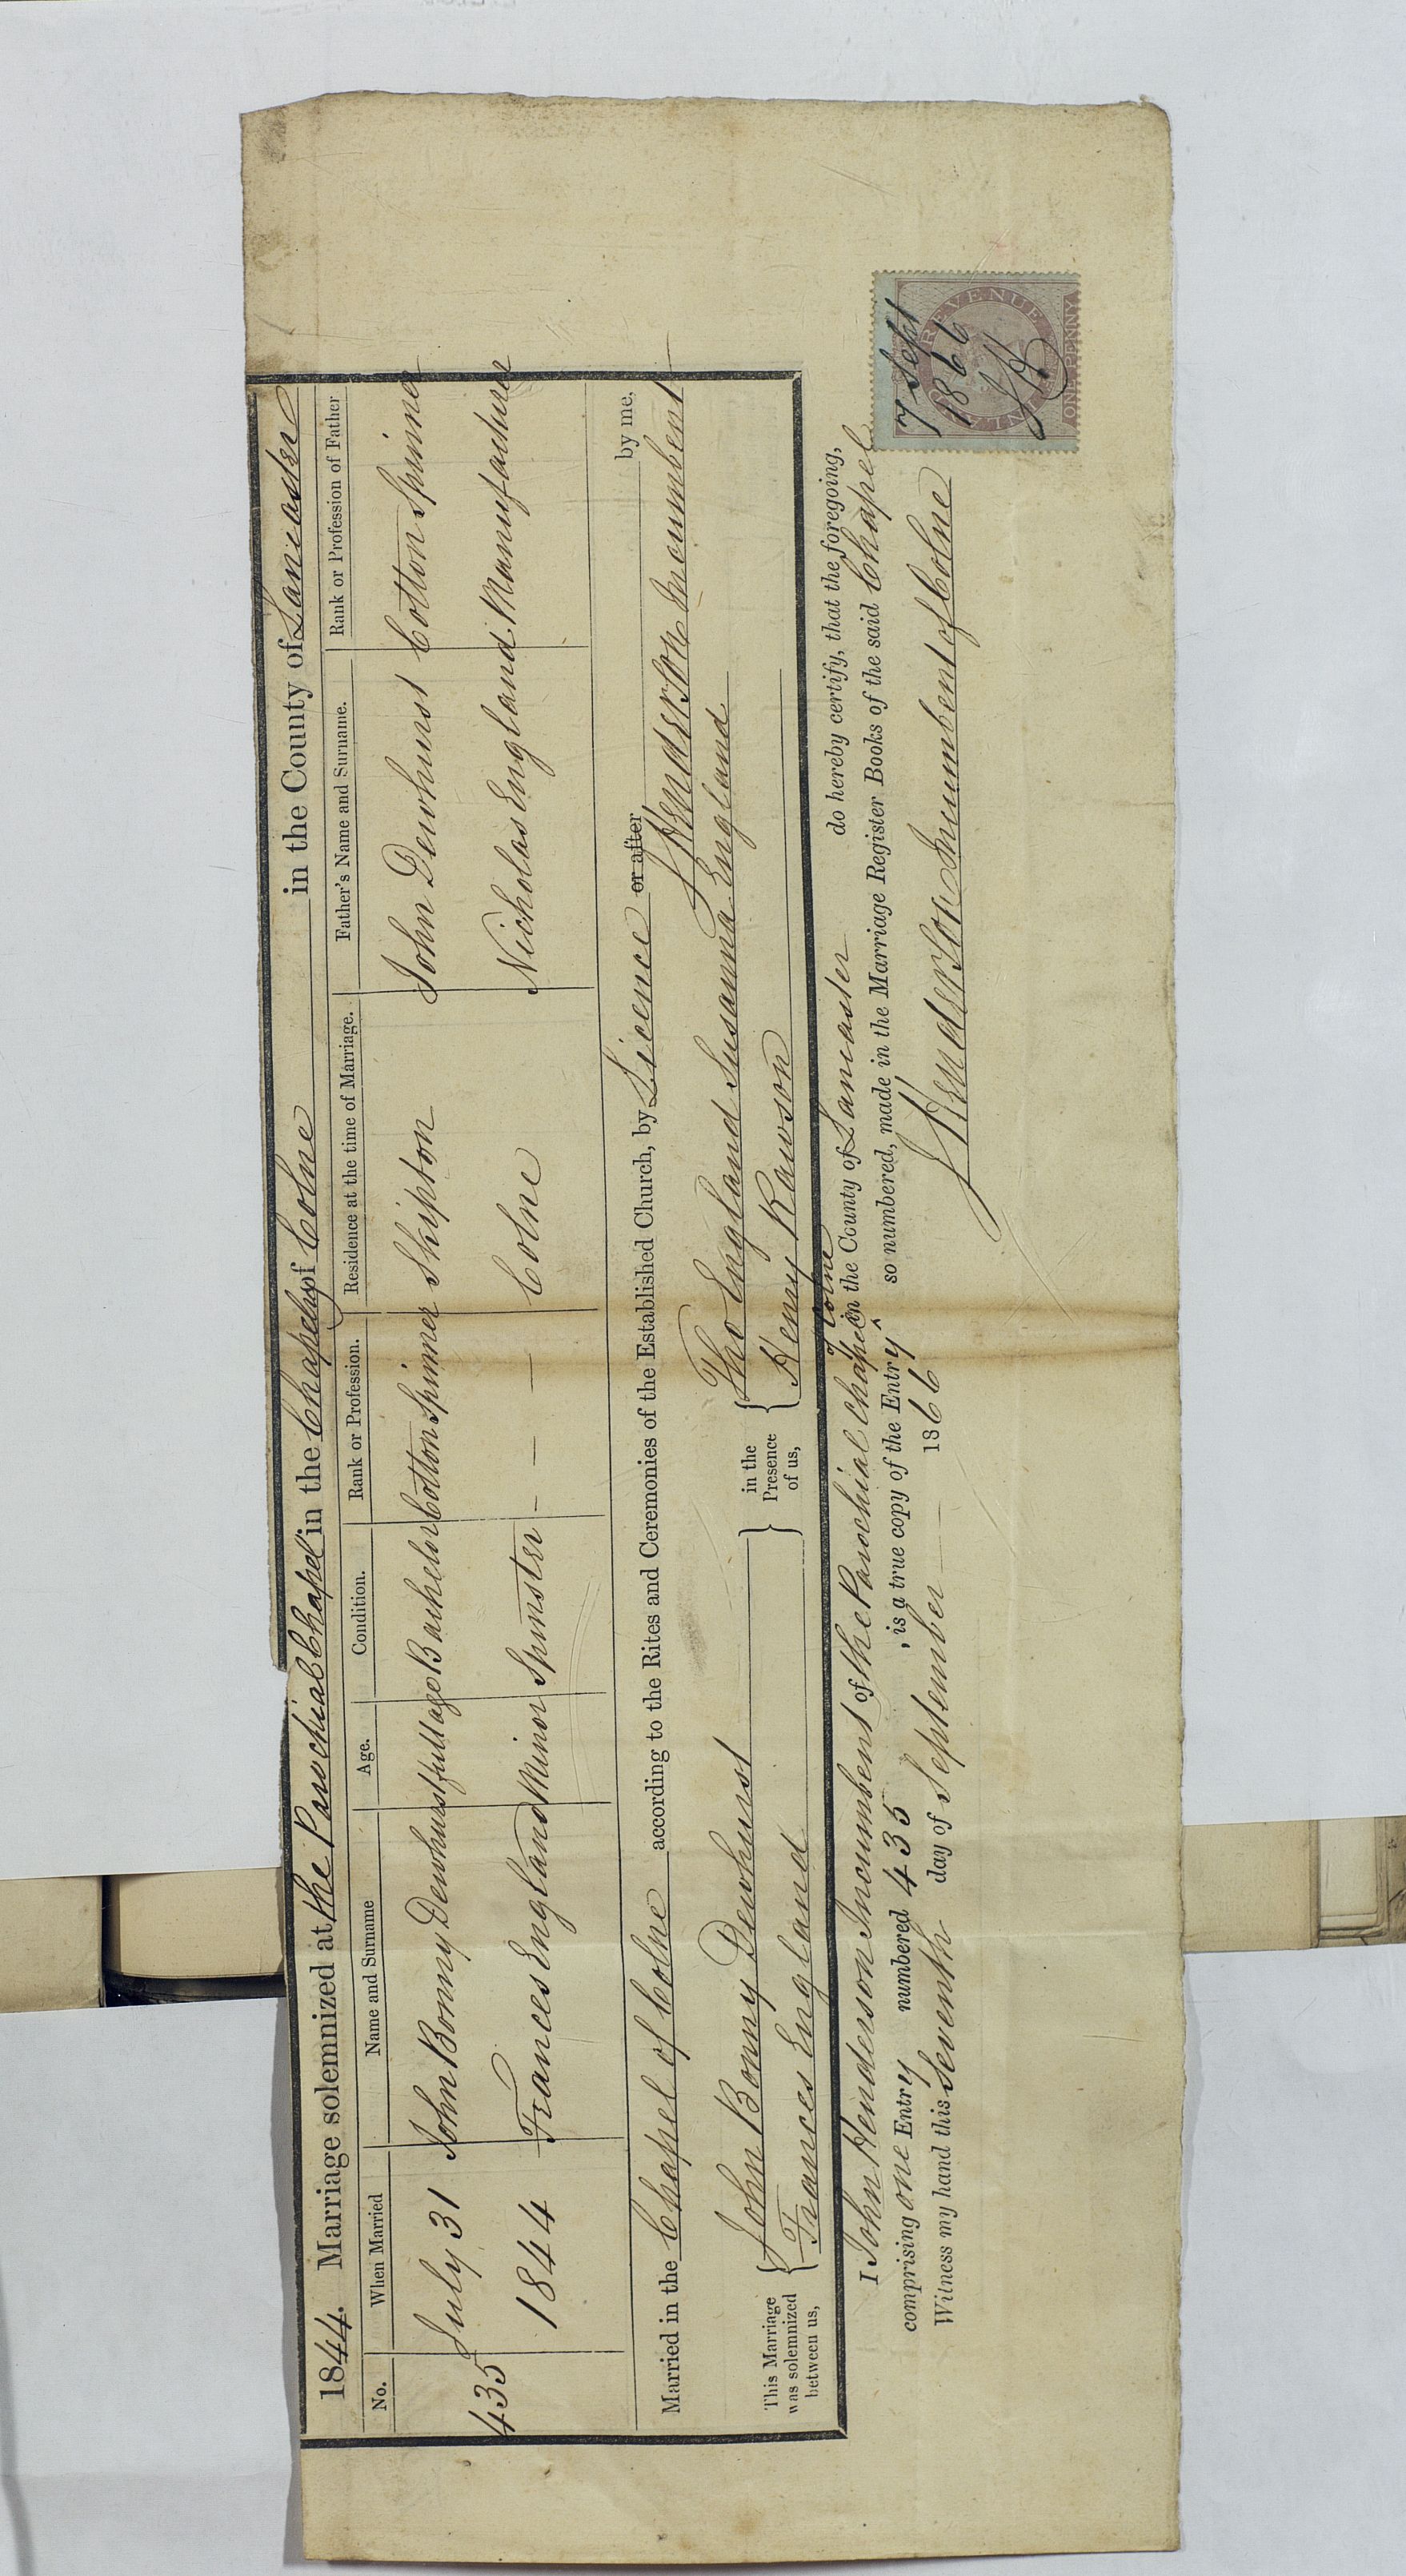 1844. Marriage solemnized at the Parochial Chapel in the Chapelry of Colne in the County of Lancaster
No. When Married Name and Surname Age. Condition. Rank or Profession. Residence at the time of Marriage. Father's Name and Surname. Rank or Profession of Father
435 July 31 John Bonny Dewhurst full age Bachelor Cotton Spinner Skipton John Dewhurst Cotton Spinner
1844 Frances England Minor Spinster – – – Colne Nicholas England Manufacturer
Married in the Chapel of Colne according to the Rites and Ceremonies of the Established Church, by Licence or after by me,
J Henderson Incumbent
This Marriage was solemnized between us, { John Bonny Dewhurst } in the Presence of us, { Tho England Susanna England
Frances England Henry Rawson
I John Henderson Incumbent of the Parochial Chapel of Colne in the County of Lancaster do hereby certify, that the foregoing,
comprising one Entry numbered 435, is a true copy of the Entry so numbered, made in the Marriage Register Books of the said Chapel
Witness my hand this Seventh day of September 1866
J Henderson Incumbent of Colne
7 Sept
1866
JH
INLAND REVENUE
ONE PENNY